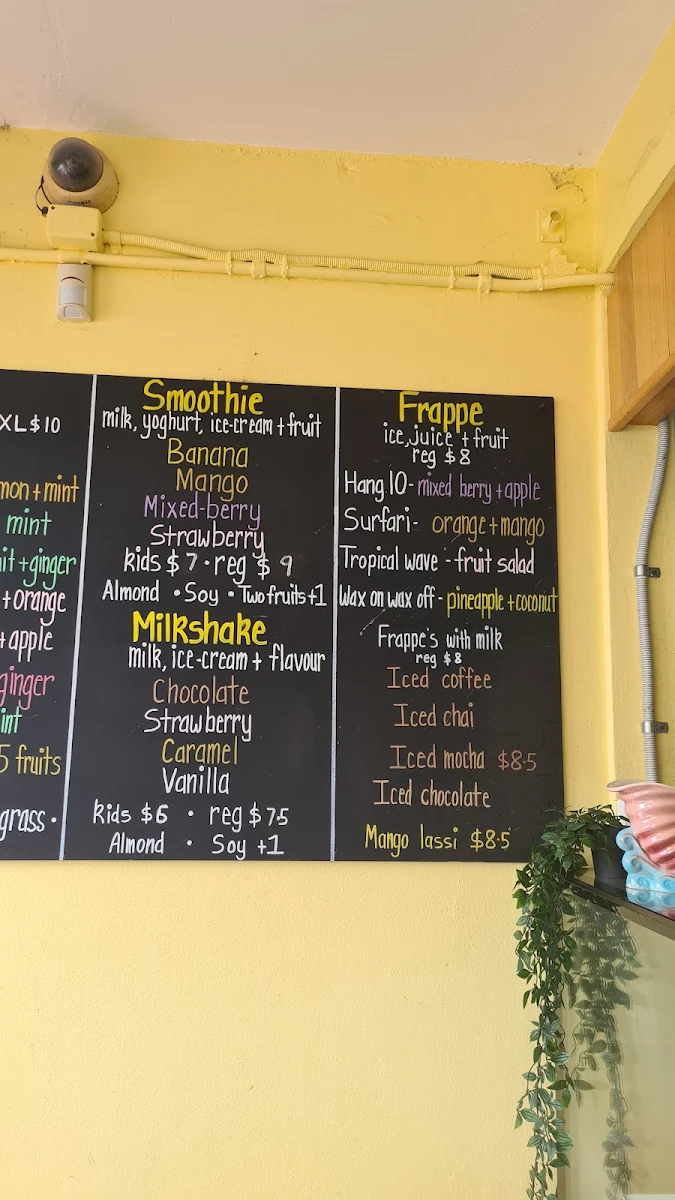 XL $10
mon + mint
mint
it + ginger
+ orange
+ apple
ginger
int
5 fruits
grass •
Smoothie
milk, yoghurt, ice-cream + fruit
Banana
Mango
Mixed-berry
Strawberry
kids $7 • reg $9
Almond • Soy • Two fruits +1
Milkshake
milk, ice-cream + flavour
Chocolate
Strawberry
Caramel
Vanilla
kids $6 • reg $7.5
Almond • Soy +1
Frappe
ice, juice + fruit
reg $8
Hang.10 - mixed berry + apple
Surfari - orange + mango
Tropical wave - fruit salad
Wax on wax off - pineapple + coconut
Frappe's with milk
reg $8
Iced coffee
Iced chai
Iced mocha $8.5
Iced chocolate
Mango lassi $8.5